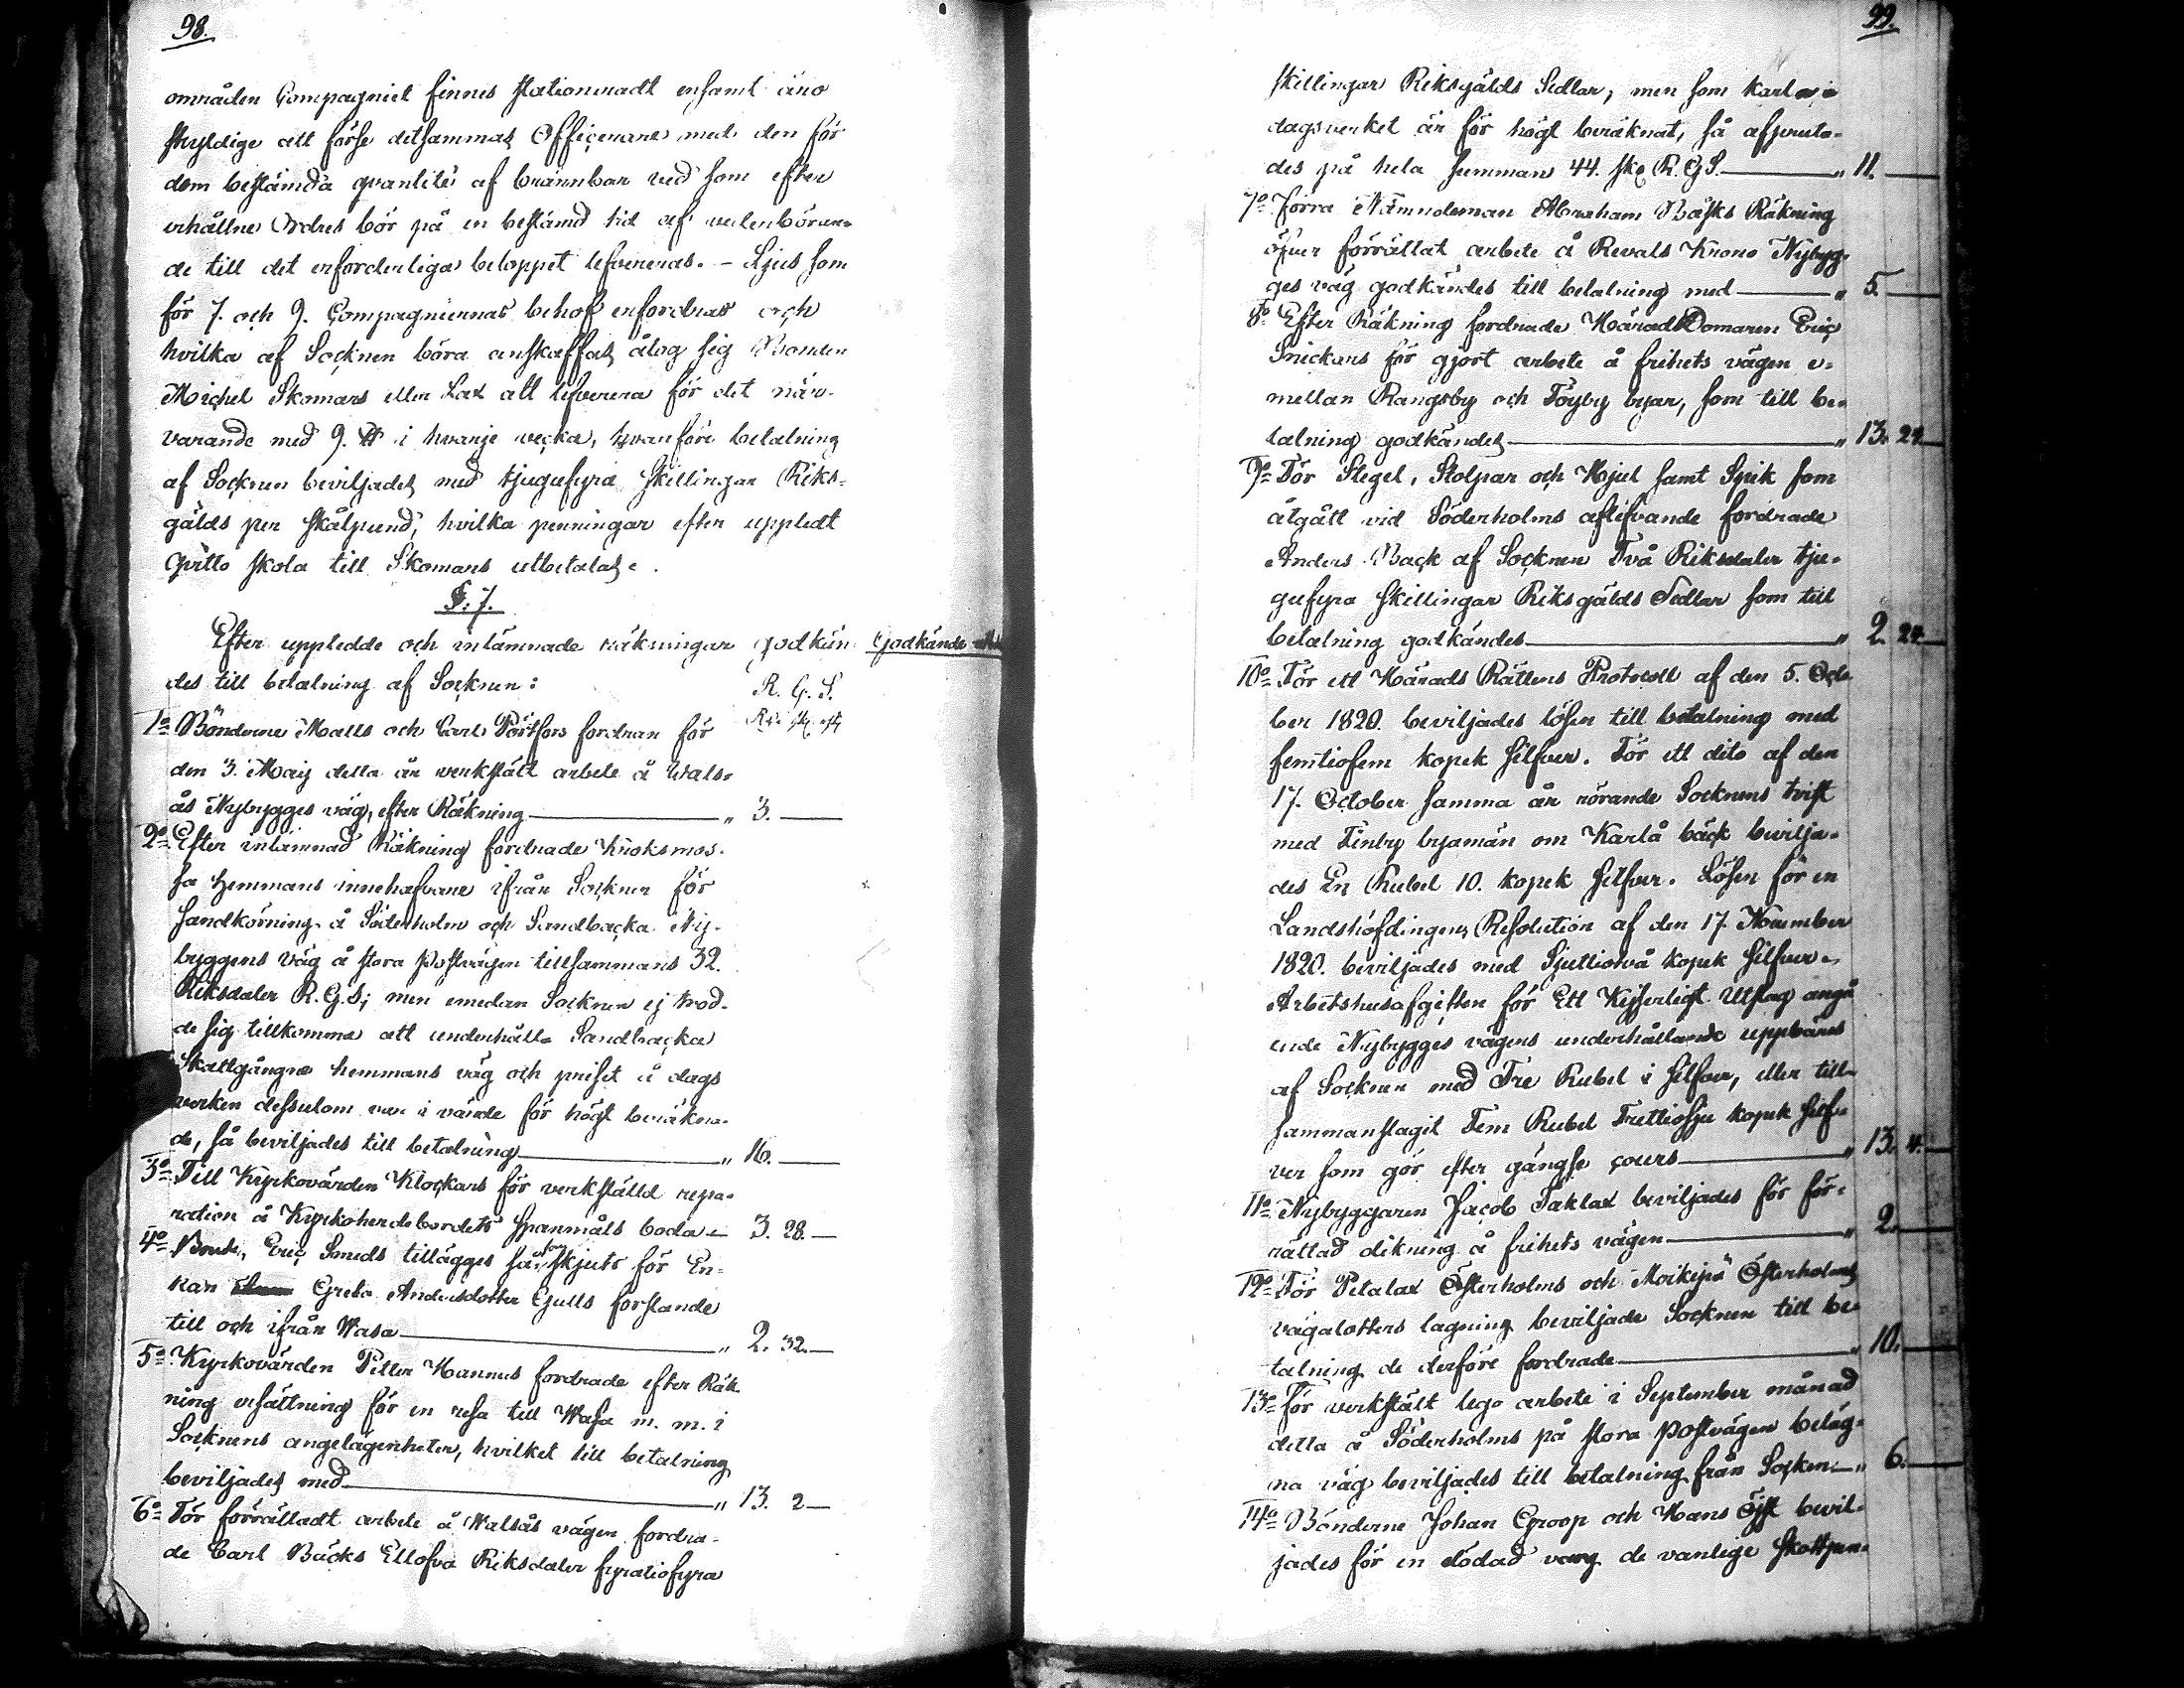 98.
områden Compagniet finnes stationeradt ensamt äro
skyldige att förse detsammas Officerare med den för
dem bestämda qvantité af brännbar ved som efter
erhållne Ordres bör på en bestämd tid af vederböran-
de till det erforderliga beloppet lefvereras. - Ljus som
för 7. och 9. Compagniernas behof erfordras och
hvilka af Socknen böra anskaffas åtog sig Bonden
Michel Skomars eller Lax att lefverera för det när-
varande med 9. ℔ i hvarje vecka, hvarföre betalning
af Socknen beviljades med tjugufyra skillingar Riks-
gälds per skålpund, hvilka penningar efter uppledt
Qvitto skola till Skomars utbetalas.
§. 7.
Efter uppledde och inlämnade räkningar godkän- Godkände
des till betalning af Socknen: R. G. S.
1o Bönderne Matts och Carl Pörtfors fordran för
den 3. Maij detta år verkstält arbete å Wals-
ås Nybygges väg, efter Räkning " 3.
2o Efter inlämnad Räkning fordrade Kroksmos-
sa hemmans innehafvare ifrån Socknen för
sandkörning å Söderholm och Sandbacka Ny-
byggens väg å stora postvägen tillsammans 32.
Riksdaler R. G. S; men emedan Socknen ej trod-
de sig tillkomma att underhålla Sandbacka
Skattgångne hemmans väg och priset å dags
verken dessutom var i värde för högt beräkna-
de, så beviljades till betalning " 16.
3o Till Kyrkovärden Klockars för verkställd repa-
ration å Kyrkoherdebordets spanmåls boda - 3. 28.
4o Bonde, Eric Smeds tillägges för skjuts för En-
kan Greta Andersdotter Gulls forslande
till och ifrån Wasa " 2. 32.
5o Kyrkovärden Petter Hannus fordrade efter Räk-
ning ersättning för en resa till Wasa m. m. i
Socknens angelägenheter, hvilket till betalning
beviljades med " 13. 2
6o För förrättadt arbete å Walsås vägen fordra-
de Carl Bäcks Ellofva Riksdaler fyratiofyra
99.
skillingar Riksgälds Sedlar; men som karl
dagsverket är för högt beräknat, så afpruta-
des på hela summan 44. sk R. G. S. " 11.
7o Förra Nämndeman Abraham Bäsks Räkning
öfver förrättat arbete å Revals Krono Nybyg-
ges väg godkändes till betalning med " 5.
8o Efter Räkning fordrade HäradsDomaren Eric
Snickars för gjort arbete å frihets vägen e-
mellan Rangsby och Töyby byar, som till be-
talning godkändes " 13. 24.
9o För Stegel, Stolpar och Hjul samt Spik som
åtgått vid Söderholms aflifvande fordrade
Anders Back af Socknen Två Riksdaler tju-
gufyra skillingar Riksgälds Sedlar som till
betalning godkändes " 2. 24.
10o För ett Härads Rättens Protocoll af den 5. Octo-
ber 1820. beviljades lösen till betalning med
femtiofem kopek silfver. För ett dito af den
17. October samma år rörande Socknens tvist
med Finby byamän om Karlå bäck bevilja-
des En Rubel 10. kopek silfver. Lösen för en
Landshöfdingens Resolution af den 17. November
1820. beviljades med Sjuttiotvå kopek silfver.
Arbetshusafgiften för Ett Kejserligt Utslag angå
ende Nybygges vägens underhållande uppbäres
af Socknen med Tre Rubel i silfver, eller till-
sammanslagit Fem Rubel Trettiosju kopek silf-
ver som gör efter gångse cours " 13. 4.
11o Nybyggaren Jacob Taklax beviljades för för-
rättad dikning å frihets vägen " 2.
12o För Petalax Österholms och Moikipä Österholms
vägalotters lagning beviljade Socknen till be-
talning de derföre fordrade " 10.
13o För verkstält lego arbete i September månad
detta å Söderholms på stora postvägen beläg-
na väg beviljades till betalning från Socken " 6.
14o Bönderne Johan Groop och Hans Öist bevil-
jades för en dödad varg de vanlige skottpen-